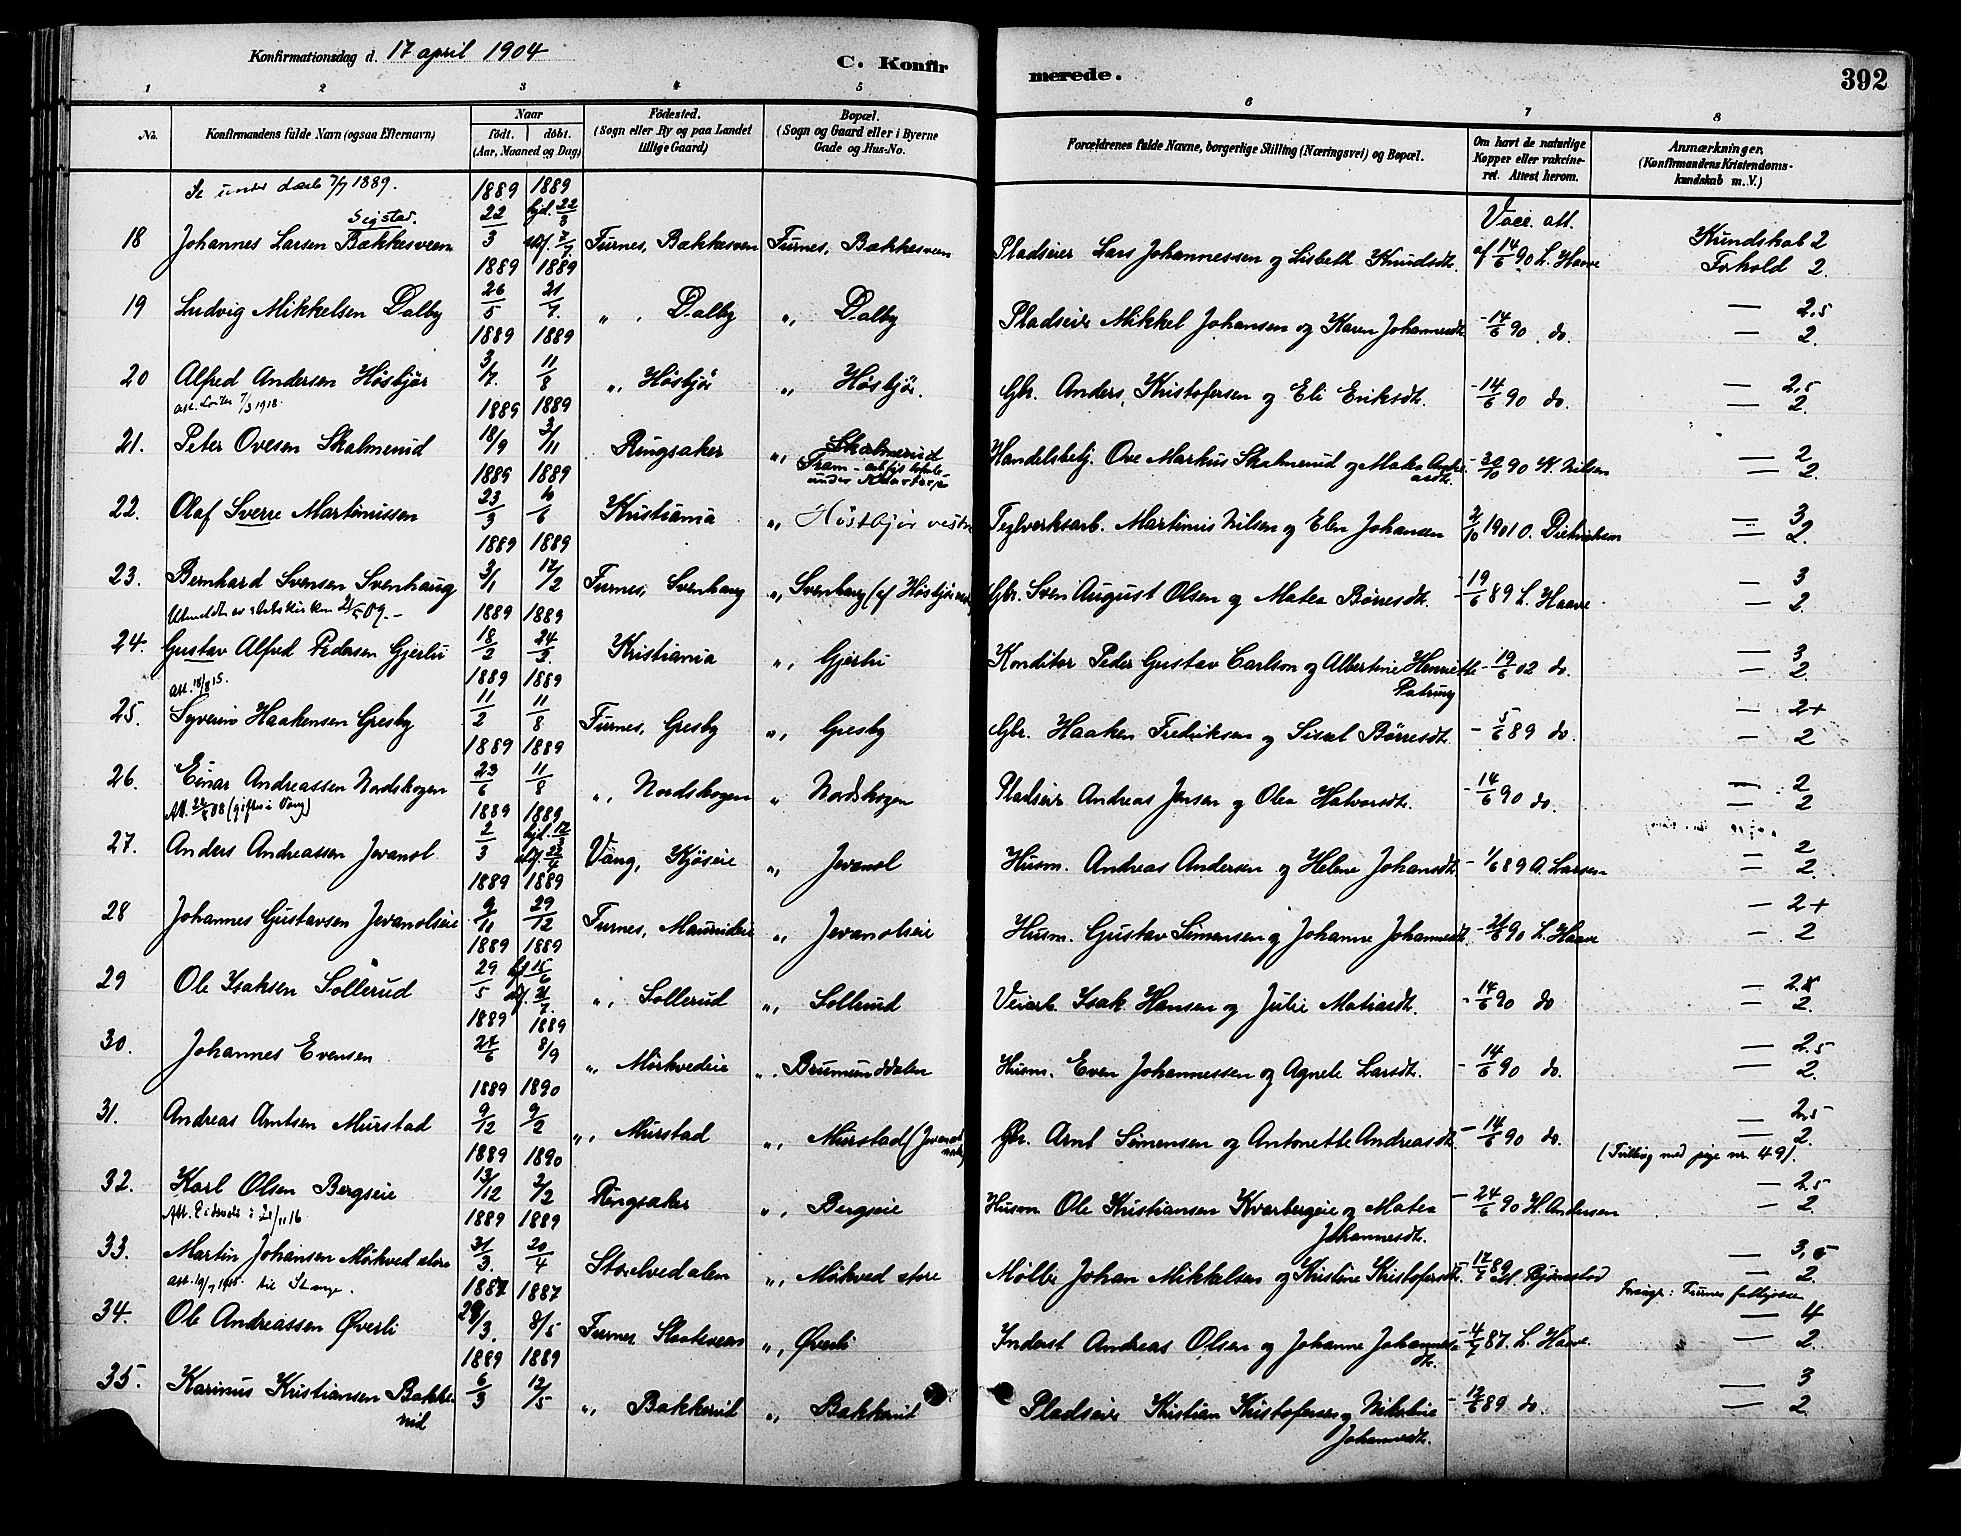 Konfirmationsdag d. 17 april 1904
C. Konfirmerede.
392
1 2 3 4 5 6 7 8
No. Konfirmandens fulde Navn (ogsaa Efternavn) Naar födt. döbt. (Aar, Maaned og Dag) Födested. (Sogn eller By og paa Landet tillige Gaard) Bopæl. (Sogn og Gaard eller i Byerne Gade og Hus-No. Forældrenes fulde Navne, borgerlige Stilling (Næringsvei) og Bopæl. Om havt de naturlige Kopper eller vakcineret. Attest herom. Anmærkninger. (Konfirmandens Kristendomskundskab m. V.)
Se under daab 7/7 1889.
18 Johannes Larsen Bakkesveen 1889 22/3 1889 hjd. 22/3 7/7 Furnes, Bakkesveen Furnes, Bakkesveen Pladseier Lars Johannessen og Lisbeth Knudsdt. Vacc. att. af 14/6 90 L. Haave Kundskab 2 Forhold 2.
19 Ludvig Mikkelsen Dalby 1889 26/5 1889 21/7. „ Dalby „ Dalby Pladseier Mikkel Johansen og Karen Johannesdt. - 14/6 90 do. — 2,5 — 2.
20 Alfred Andersen Hösbjör 1889 3/7. 1889 11/8 „ Hösbjör „ Hösbjör. Gbr. Anders Kristofersen og Eli Eriksdt. - 14/6 90 do. — 2,5 — 2.
7/3 1918.
21. Peter Ovesen Skalmerud 1889 18/9 1889 3/11 Ringsaker „ Skalmerud Handelsbetj. Ove Markus Skalmerud og Matea - 30/10 90 N. Nilsen — 2 — 2.
22. Olaf Sverre Martinussen 1889 23/3 1889 10/6 Kristiania „ Höstbjör vestre Teglverksarb. Martinus Nilsen og Elen Johansen 2/10 1901 O. — 3 — 2.
23. Bernhard Svensen Svenhaug 1889 3/1 1889 17/2 Furnes, Svenhaug „ Svenhaug (af Hösbjör Gbr. Sven August Olsen og Matea Börresdt. - 19/6 89 L. Haave — 3 — 2.
24. Gustav Alfred Pedersen Gjerlu 1889 18/2 1889 24/3. Kristiania „ Gjerlu Konditor Peder Gustav Carlson og Albertine Henriette - 19/6 02 do — 3 — 2.
att. 18/8 15.
25. Syverin Haakensen Gresby 1889 11/2 1889 11/8 Furnes, Gresby „ Gresby Gbr. Haaken Fredriksen og Sisel Börresdt. - 5/6 89 do. — 2+ — 2
26. Einar Andreassen Nordskogen 1889 23/6 1889 11/8 „ Nordskogen „ Nordskogen Pladseier Andreas Jensen og Olea Halvorsdt. - 14/6 90 do. — 2 — 2
(giftes i Vang)
27. Anders Andreassen Jevanol 1889 2/3 1889 hjd. 17/3 22/4 Vang, Kjöseie „ Jevanol Husm. Andreas Andersen og Helene Johansdt. - 1/6 89 A. Larsen — 2 — 2.
28 Johannes Gustavsen Jevanolseie 1889 9/11 1889 29/12 Furnes, „ Jevanolseie Husm. Gustav Simensen og Johanne Johannesdt. 90 L. Haave — 2+ — 2
29 Ole Isaksen Sollerud 1889 29/5 1889 15/6 21/7. „ Sollerud „ Sollerud Veiarb. Isak Hansen og Julie Matiasdt. - 14/6 90 do — 2.
30. Johannes Evensen 1889 27/6 1889 8/9 „ Mörkvedeie „ Brumunddalen Husm. Even Johannessen og Agnete Larsdt. - 14/6 90 do. — 2.5 — 2.
31. Andreas Arntsen Murstad 1889 9/12 1890 9/2 „ Murstad „ Murstad Gbr. Arnt Simensen og Antonette Andreasdt. - 14/6 90 do. — 2,5 — 2.
(Tvilling med pige nr. 49).
32. Karl Olsen Bergseie 1889 13/12 1890 2/2 Ringsaker „ Bergseie Husm Ole Kristiansen Kvarbergeie og Matea Johannesdt. - 24/6 90 H Andersen — 2.5 — 2.
33. Martin Johansen Mörkved store 1889 31/3. 1889 20/4 Storelvedalen „ Mörkved store Mölle Johan Mikkelsen og Kristine Kristofersdt. - 17/7 89 — 3,5 — 2.
til Stange.
34. Ole Andreassen Överli 1887 28/3. 1887 8/5 Furnes „ Överli Inderst Andreas Olsen og Johanne Johannesdt. 87. L. Haave — 4 — 2.
35. Karinus Kristiansen Bakkevit 1889 6/3 1889 12/5 „ Bakkevit „ Bakkevit Pladseier Kristian Kristofersen og Nikoline Johannesdt. - 12/6 89 do. — 3 — 2.